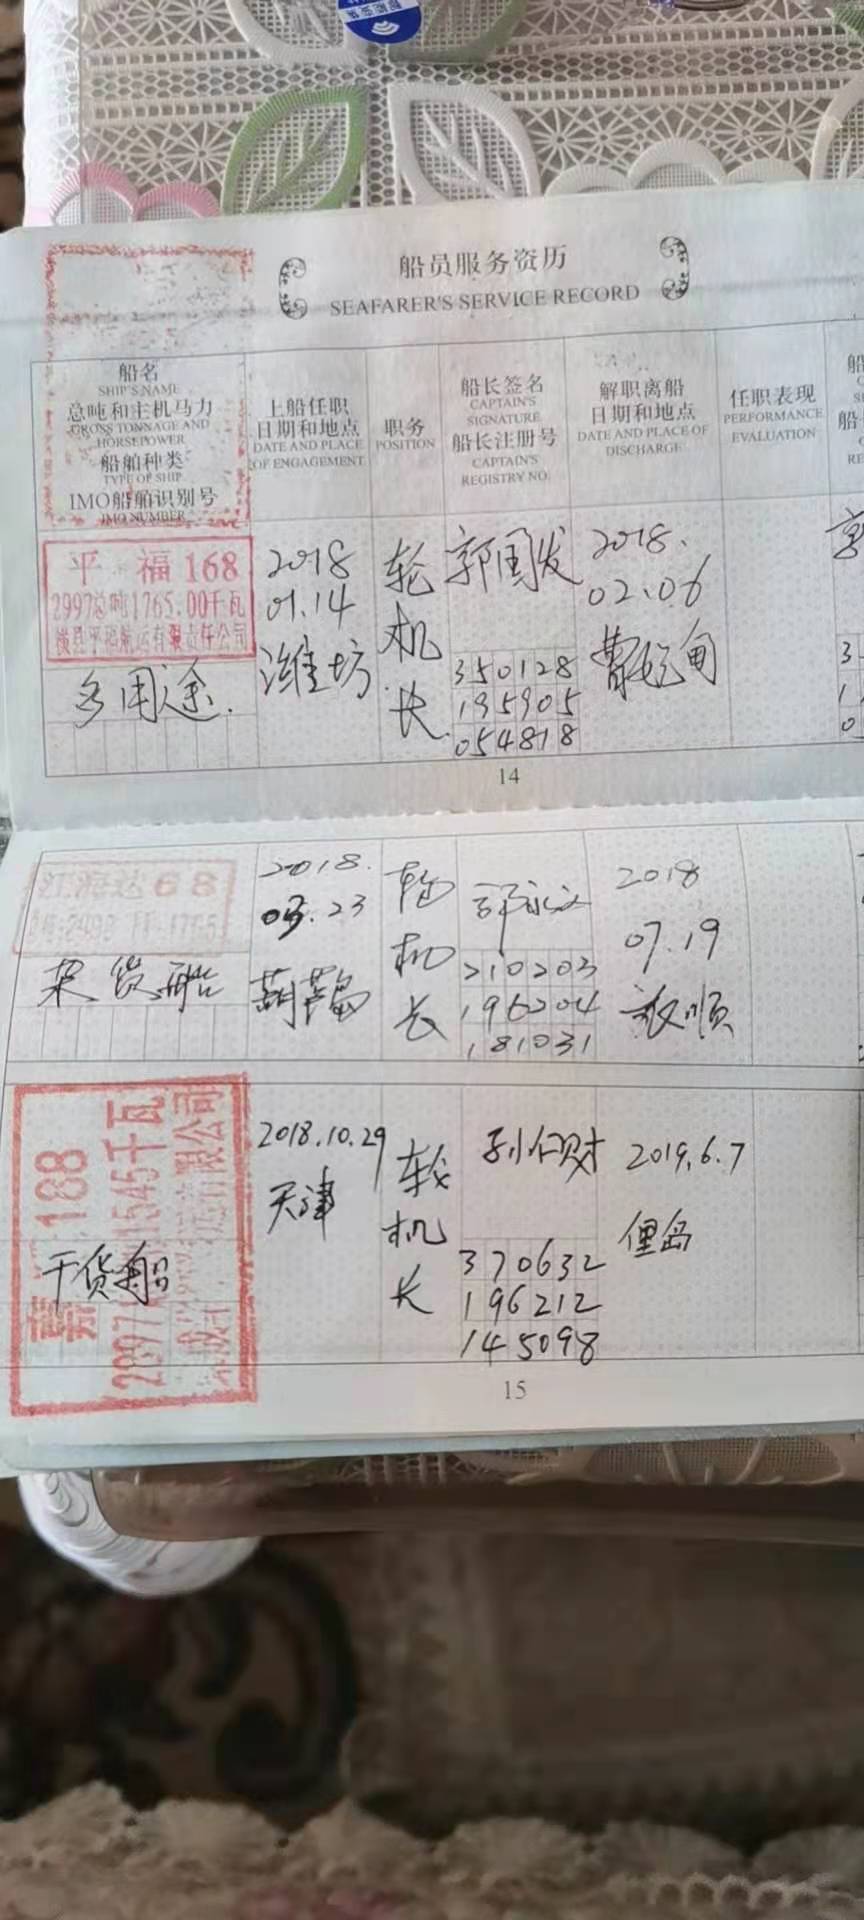 船员服务资历
SEAFARER'S SERVICE RECORD
船名
SHIP'S NAME
总吨和主机马力
GROSS TONNAGE AND
HORSEPOWER
船舶种类
TYPE OF SHIP
IMO船舶识别号
IMO NUMBER
上船任职
日期和地点
DATE AND PLACE
OF ENGAGEMENT
职务
POSITION
船长签名
CAPTAIN'S
SIGNATURE
船长注册号
CAPTAIN'S
REGISTRY NO.
解职离船
日期和地点
DATE AND PLACE OF
DISCHARGE
任职表现
PERFORMANCE
EVALUATION
船
船
平福168
2997总吨1765.00千瓦
平福航运有限责任公司
多用途.
2018
01.14
潍坊
轮机长
郭国发
350128
195905
054818
2018.
02.06
曹妃甸
14
杂货船
2018.
03.23
葫芦岛
轮机长
210203
196204
181031
2018
07.19
旅顺
188
1545千瓦
有限公司
干货船
2018.10.29
天津
轮机长
孙仁财
370632
196212
145098
2019.6.7
俚岛
15